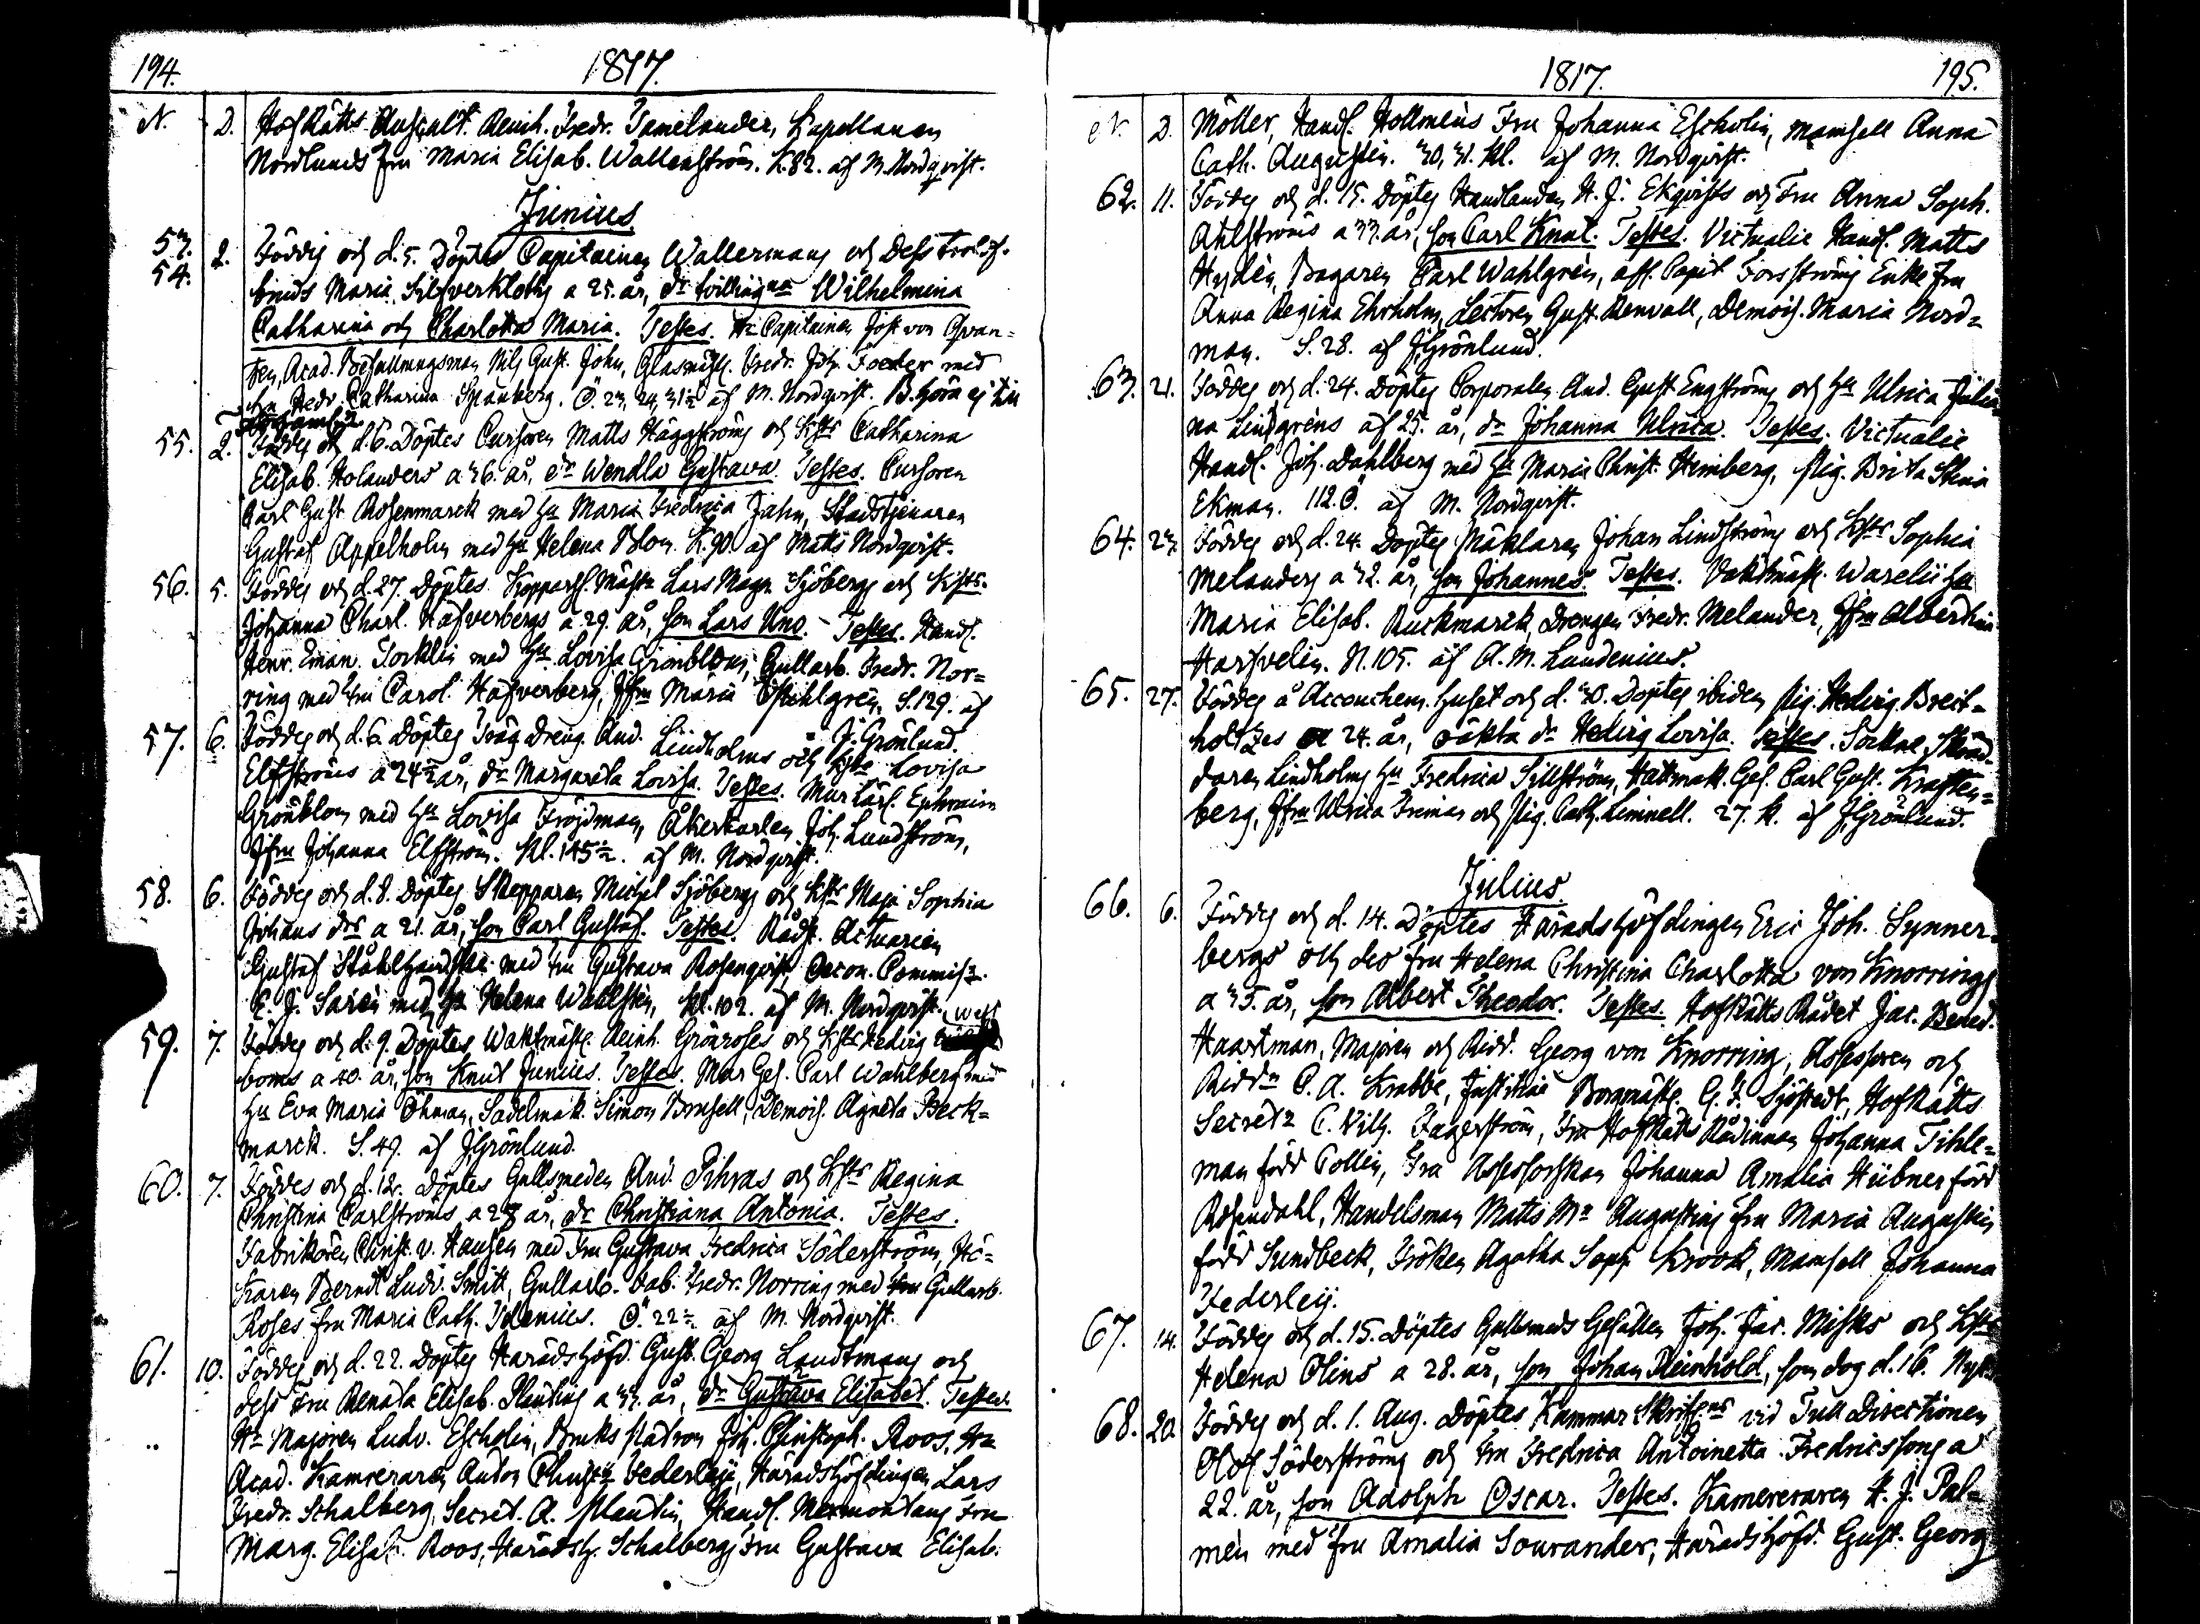 194. 1817.
N. D. HofRätts Auscult. Reinh. Fredr. Tamelander, Kapellanen
Nordlunds Fru Maria Elisab. Wallenström. K.82. af M. Nordqvist.
Junius.
53. 54. 2. Föddes och d. 5. Döptes Capitainen Wallermans och Dess
Maria Silfverklohs a 25. år, dr tvillingar Wilhelmina
Catharina och Charlotta Maria. Testes. Hr Capitainen von Qvan-
ten, Acad. Befallningsman Nils Gust. John, Glasmäst. Fredr. Joh. Foeder med
Fredr. Catharina Spanberg. Ö. 23, 24, 31½ af M. Nordqvist. B. höra ej till
församl.
55. 2. Föddes och d. 6. Döptes Cursoren Matts Häggströms och Hstr Catharina
Elisab. Holanders a 36. år, dr Wendla Gustava. Testes. Cursoren
Carl Gust. Rosenmarck med Hu Maria Fredrica Jahn, Stadstjenaren
Gustaf Appelholm med Hu Helena Blom. K. 90 af Matts Nordqvist.
56. 5. Föddes och d. 27. Döptes Kopparsl. Mästn Lars Magn. Sjöbergs och Hstrs
Johanna Charl. Hafverbergs a 29. år, son Lars Uno. Testes. Handl.
Henr. Eman. Torklin med Hu Lovisa Grönblom, Gullarb. Fredr. Nor-
ring med Fru Carol. Hafverberg, Jfru Maria Öfuhlgren, S. 129. af
J. Grönlund.
57. 6. Föddes och d. 6. Döptes Dreng. And. Lindholms och Hstr Lovisa
Elfströms a 24½ år, dr Margareta Lovisa. Testes. MurLärl. Ephraim
Grönblom med Hu Lovisa Fröjdman, Åkerkarlen Joh. Lundström,
Jfru Johanna Elfström. Kl. 145½. af M. Nordqvist.
58. 6. Föddes och d. 8. Döptes Skepparen Michel Sjöbergs och Hstr Maja Sophia
Johansdrs a 21. år, son Carl Gustaf. Testes. Rådst. Actuarien
Gustaf Stålhandske med Fru Gustava Rosenqvist, Oecon. Commiss.
E. J. Sarén med Hu Helena Wahlsten, Kl. 102. af M. Nordqvist.
59. 7. Föddes och d. 9. Döptes Waktmäst. Reinh. Grönroses och Hstr Hedvig West
boms a 40. år, son Knut Junius. Testes. Mur Ges. Carl Wahlberg med
Hu Eva Maria Öhman, Sadelmak. Simon Brusell, Demois. Agneta Beck-
marck. S. 49. af J. Grönlund.
60. 7. Föddes och d. 12. Döptes Gullsmeden And. Pihras och Hstr Regina
Christina Carlströms a 28 år, dr Christiana Antonia. Testes.
Fabrikören Christ. v. Hausen med Fru Gustava Fredrica Söderström, Hö-
karen Berndt Ludv. Smitt, Gullarb. Gab. Fredr. Norring med Gullarb.
Roses Fru Maria Cath. Idenius. Ö. 22½ af M. Nordqvist.
61. 10. Föddes och d. 22. Döptes Häradshöfd. Gust. Georg Landtmans och
dess Fru Renata Elisab. Plantins a 33. år, dr Gustava Elisabet. Testes.
Hr Majoren Ludv. Escholin, Bruks Patron Joh. Christoph. Roos, Hr
Acad. Kamreraren Anton Christn Federleij, Häradshöfdingen Lars
Fredr. Schalberg, Secret. A. Plantin, Handl. Mermontans Fru
Marg. Elisab. Roos, Häradsh. Schalbergs Fru Gustava Elisab.
1817. 195.
N. D. Möller, Handl. Hollméns Fru Johanna Escholin, mamsell Anna
Cath. Augustin. 30, 31. Kl. af M. Nordqvist.
62. 11. Föddes och d. 15. Döptes Handlanden H. J. Ekqvists och Fru Anna Soph.
Ahlströms a 33. år, son Carl Knut. Testes. Victualie Handl. Matts
Hydén, Bagaren Carl Wahlgrén, afl. Capit. Forsströms Enke Fru
Anna Regina Ehrholm, Lectoren Gust. Renvall, Demois. Maria Nord-
man. S. 28. af J. Grönlund.
63. 21. Föddes och d. 24. Döptes Corporalen And. Gust. Engströms och Hu Ulrica Julia
na Lindgréns af 25. år, dr Johanna Ulrica. Testes. Victualie
Handl. Joh. Dahlberg med Hu Maria Christ. Heimberg, Pig. Brita Stina
Ekman. 112. Ö. af M. Nordqvist.
64. 23. Föddes och d. 24. Döptes Mäklaren Johan Lindströms och Hstr Sophia
Melanders a 32. år, son Johannes. Testes. Vaktmäst. Warelii Hu
Maria Elisab. Ruckmarck, Drengen Fredr. Melander, Jfru Albertina
Harfvelin. N. 105. af A. M. Landenius.
65. 27. Föddes å Accouchem. huset och d. 30. Döptes ibidem Pig. Hedvig Breit-
holtzes a 24. år, oäkta dr Hedvig Lovisa. Testes. Sockne Skräd-
daren Lindholms Hu Fredrica Sillström, Hattmak. Ges. Carl Gust. Kraften-
berg, Jfru Ulrica Friman och Pig. Cath. Limnell. 27. K. af J. Grönlund.
Julius.
66. 6. Föddes och d. 14. Döptes Häradshöfdingen Eric Joh. Synner-
bergs och des Fru Helena Christina Charlotta von Knorrings
a 35. år, son Albert Theodor. Testes. HofRätts Rådet Jac. Bened.
Haartman, Majoren och Ridd. Georg von Knorring, Assessoren och
Riddn C. A. Krabbe, Justitiæ Borgmäst. G. F. Sjöstedt, HofRätts
Secretn C. Vilh. Fagerström, Fru HofRätts Rådinnan Johanna Tihle-
man född Collin, Fru Assessorskan Johanna Amalia Hübner född
Rosendahl, Handelsman Matts Mn Augustins Fru Maria Augustin
född Sundbeck, Fröken Agatha Soph. Krook, Mamsell Johanna
Federleij.
67. 14. Föddes och d. 15. Döptes Gullsmeds Gesällen Joh. Jac. Misks och Hstr
Helena Olins a 28. år, son Johan Reinhold, som dog d. 16.
68. 20. Föddes och d. 1. Aug. Döptes Kammar Skrifvns vid Tull Directionen
Olof Söderströms och Fru Fredrica Antoinetta Fredricssons a
22. år, son Adolph Oscar. Testes. Kamereraren H. J. Pal-
mén med Fru Amalia Sourander, Häradshöfd. Gust. Georg